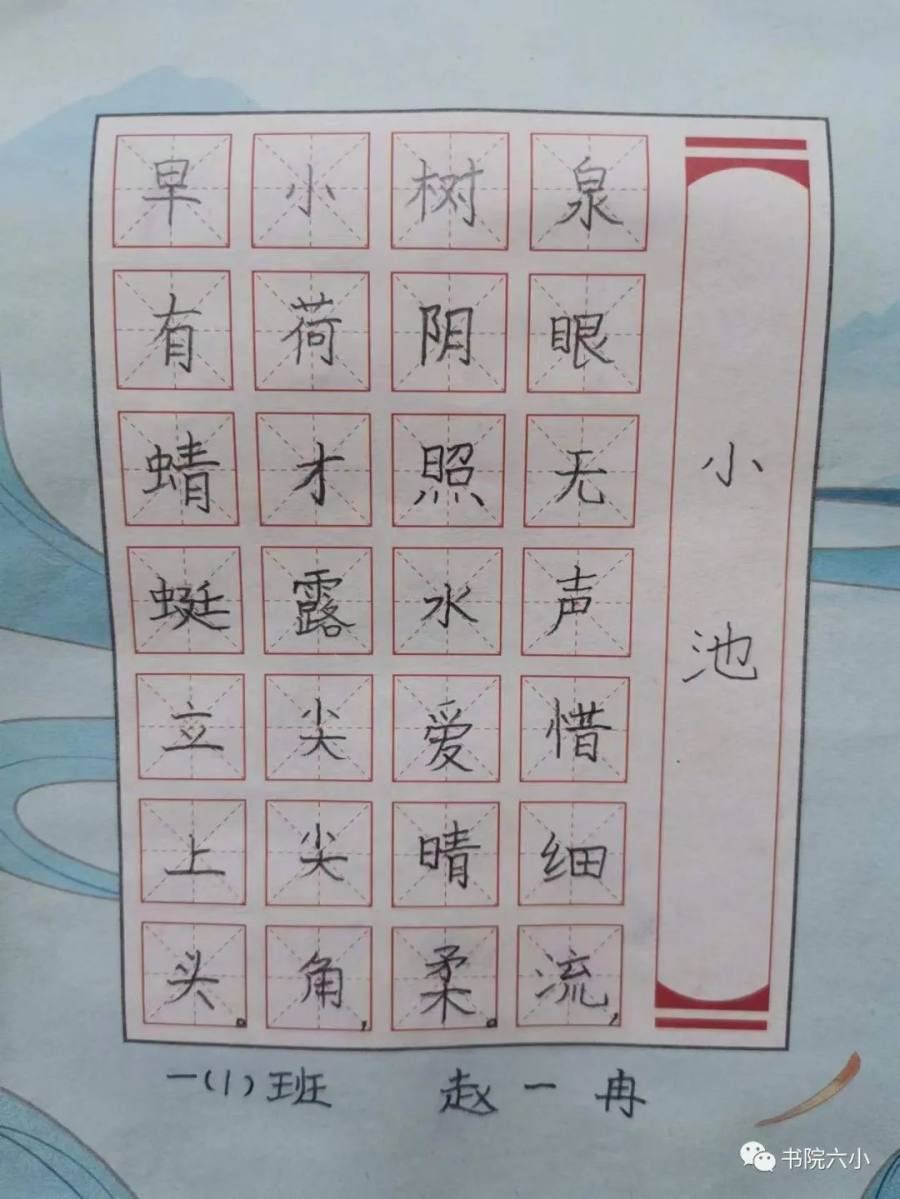 小池
泉眼无声惜细流，
树阴照水爱晴柔。
小荷才露尖尖角，
早有蜻蜓立上头。
一(1)班 赵一冉
书院六小